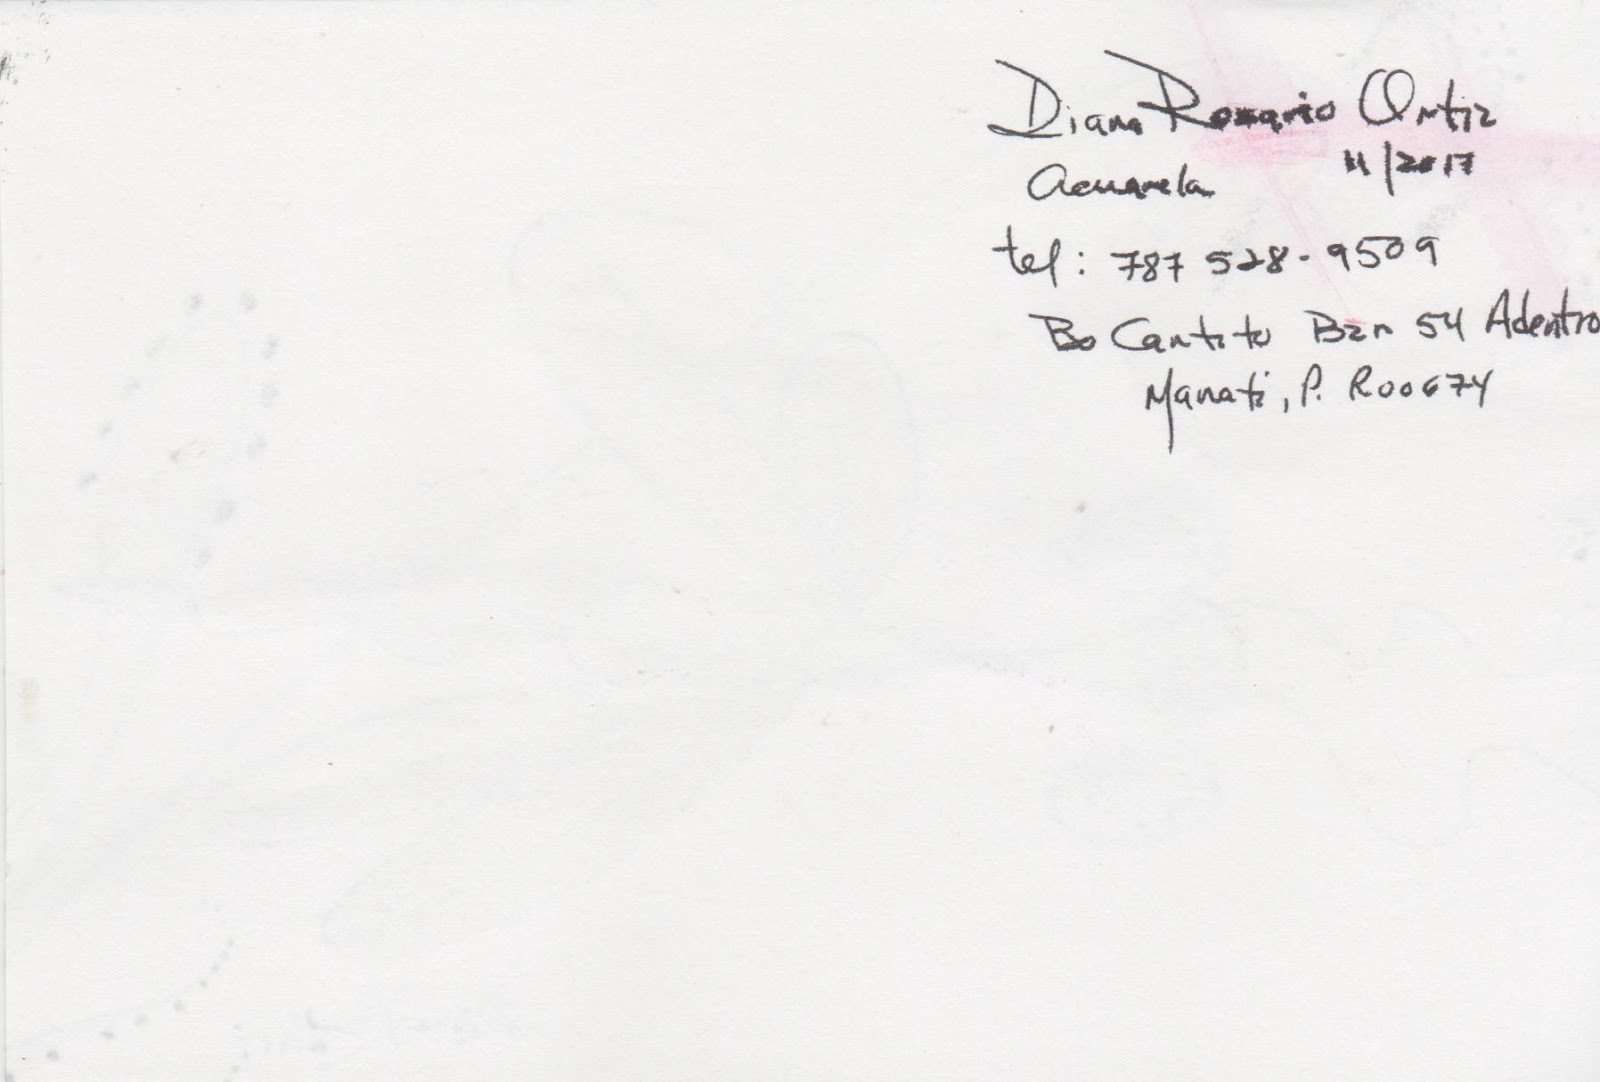 Diana Rosario Ortiz
Acuarela 11/2017
tel: 787 528-9509
Bo Cantito Bzn 54 Adentro
Manati, P. R00674